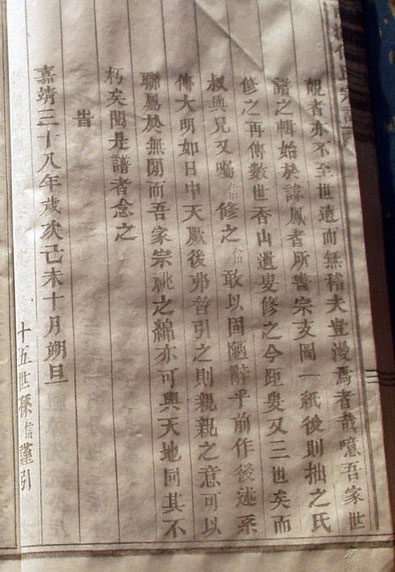 覩者亦不至世遠而無稽夫豈漫焉者哉噫吾家世
譜之輯始於諱鳳者所書宗支圖一紙後則拙之氏
修之再傳數世香山遺叟修之今距叟又三世矣而
叔與兄又囑信修之信敢以固陋辭乎前作後述系
傳大明如日中天厥後弗替引之則親親之意可以
聯屬於無間而吾家宗祧之綿亦可與天地同其不
朽矣閱是譜者念之
旹
嘉靖三十八年歲次己未十月朔旦
十五世孫信謹引